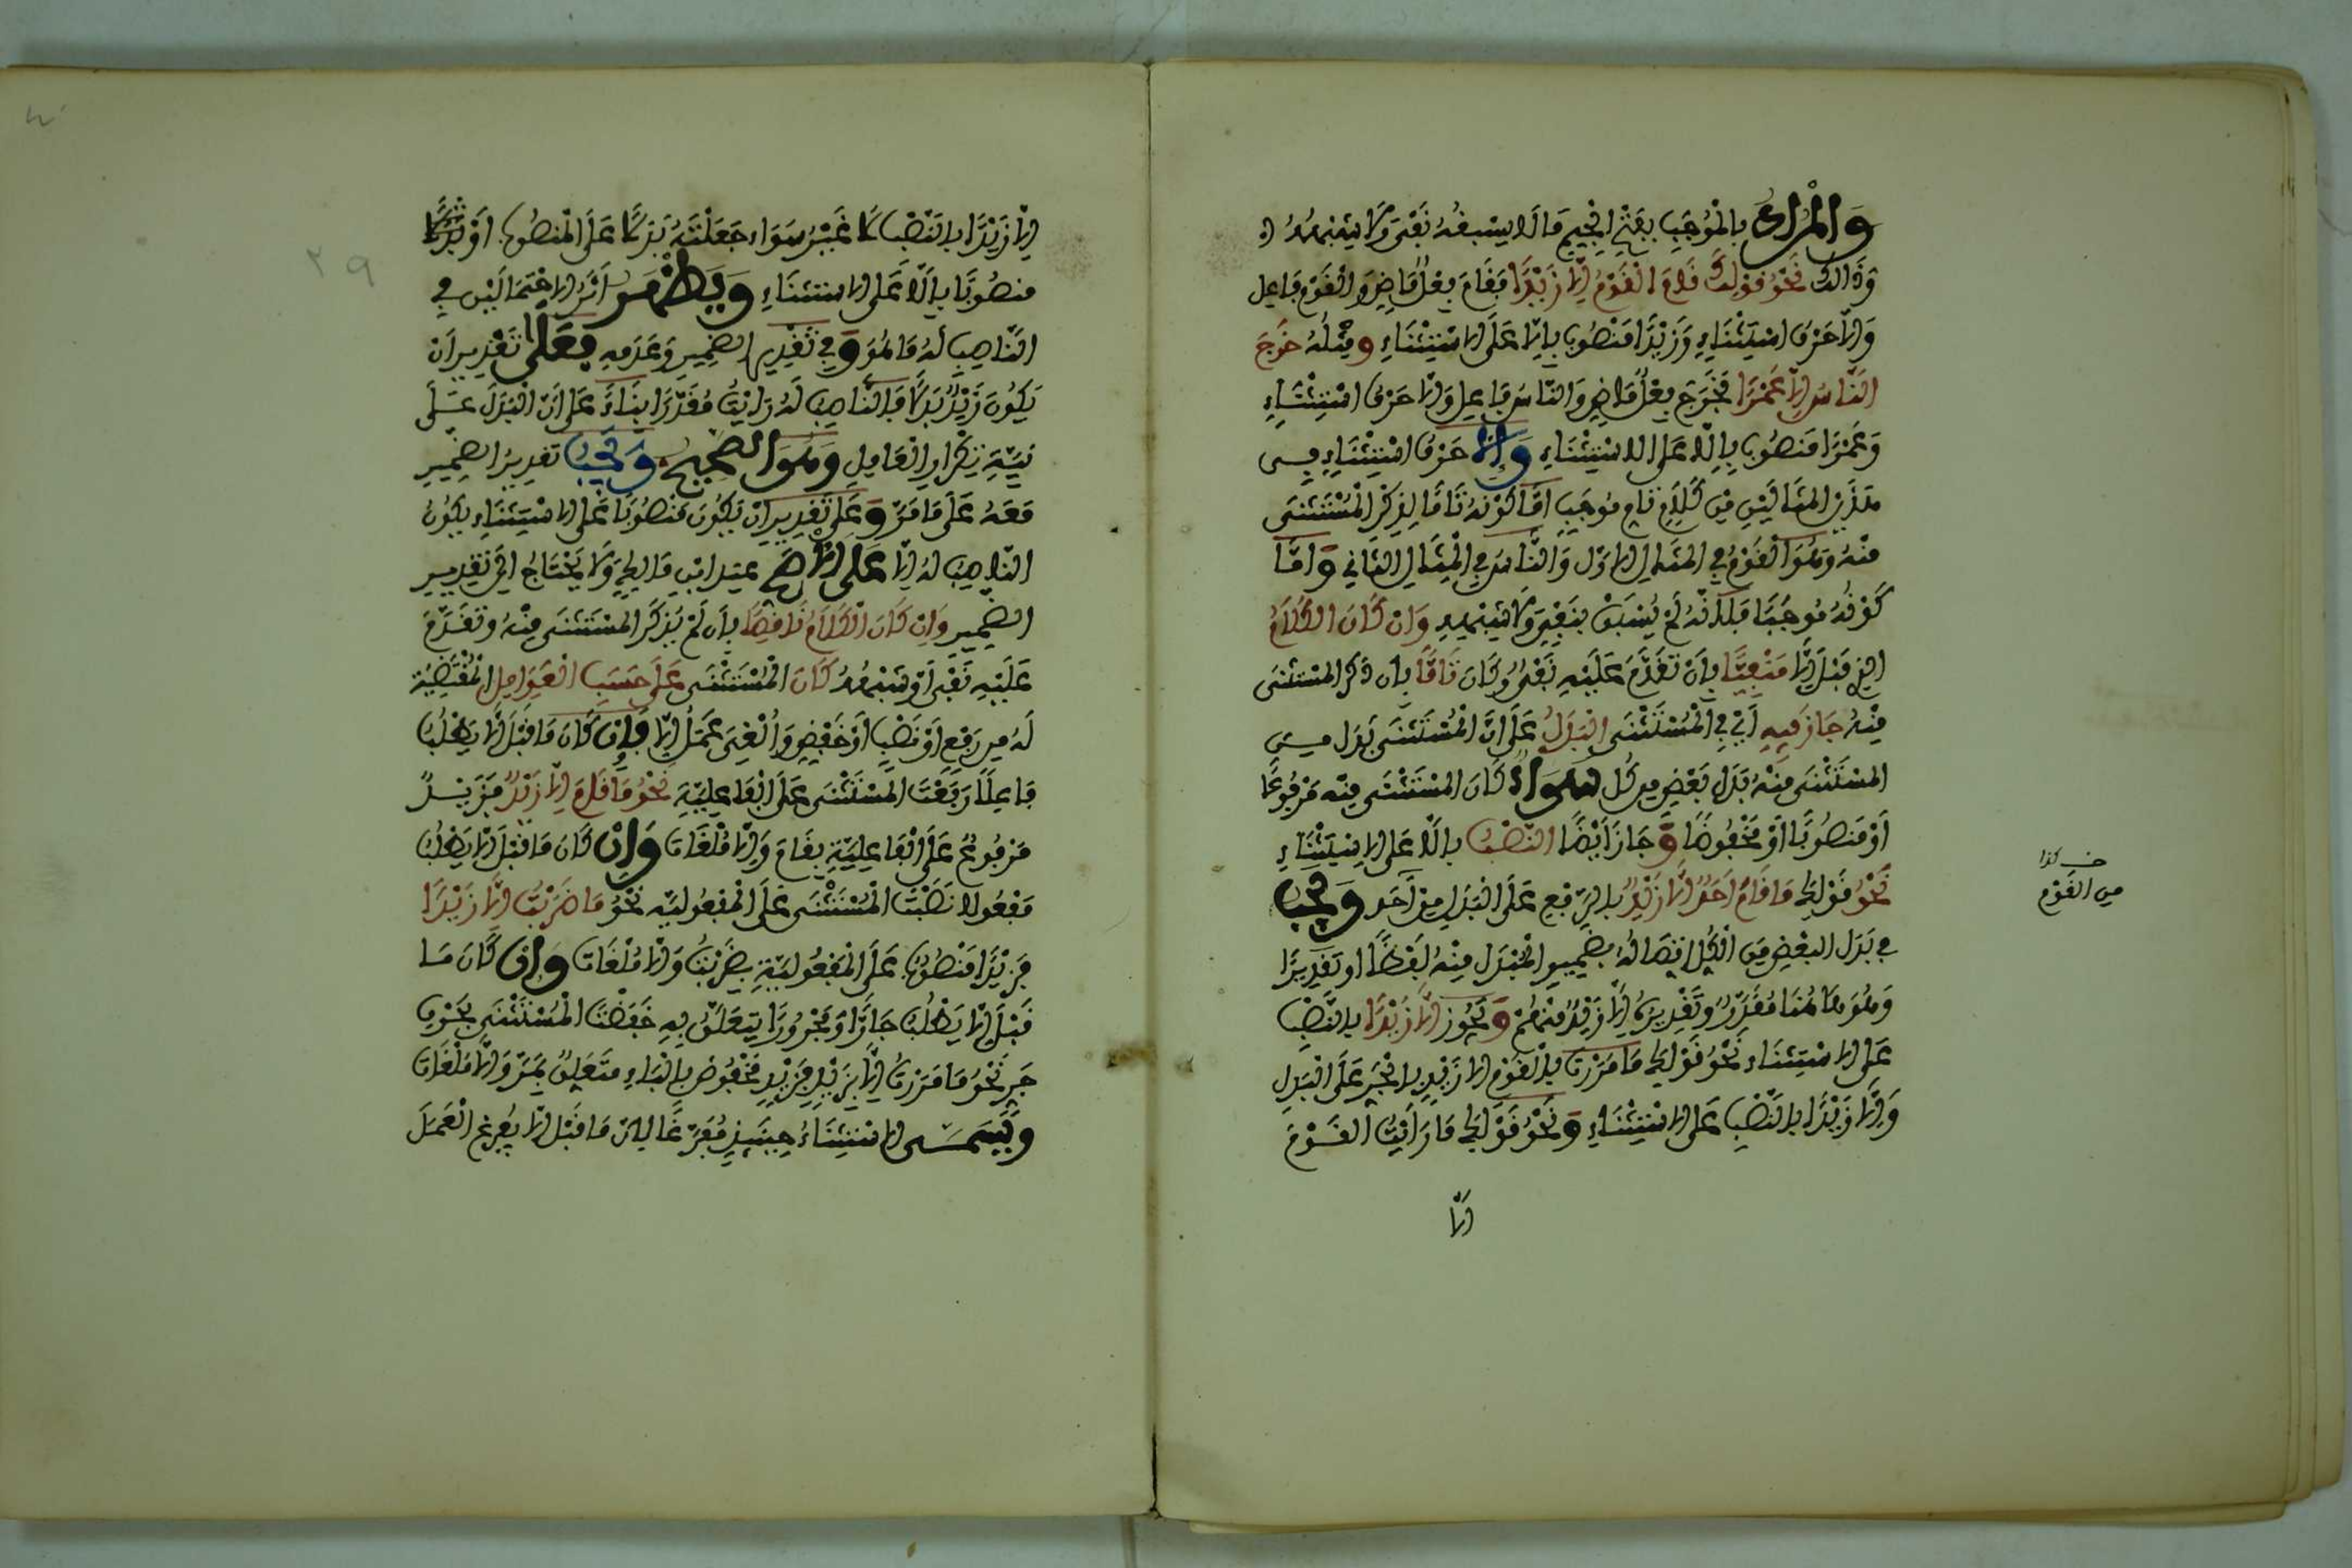 وَالْمُرَادُ بِالْمُوجَبِ بِفَتْحِ الْجِيمِ مَا لَا يَسْبِقُهُ نَفْيٌ وَلَا شِبْهُهُ
وَذَالِكَ نَحْوُ قَوْلِكَ قَامَ الْقَوْمُ إِلَّا زَيْدًا فَقَامَ فِعْلٌ مَاضٍ وَالْقَوْمُ فَاعِل
وَإِلَّا حَرْفُ اسْتِثْنَاءٍ وَزَيْدًا مَنْصُوبٌ بِإِلَّا عَلَى الِاسْتِثْنَاءِ وَمِثْلُهُ خَرَجَ
النَّاسُ إِلَّا عَمْرًا فَخَرَجَ فِعْلٌ مَاضٍ وَالنَّاسُ فَاعِل وَإِلَّا حَرْفُ اسْتِثْنَاءٍ
وَعَمْرًا مَنْصُوبٌ بِإِلَّا عَلَى الِاسْتِثْنَاءِ وَإِلَّا حَرْفُ اسْتِثْنَاءٍ فِي
هَذَيْنِ الْمِثَالَيْنِ مِنْ كَلَامٍ تَامٍ مُوجَبٍ أَمَّا كَوْنُهُ تَامًّا لِذِكْرِ الْمُسْتَثْنَى
مِنْهُ وَهُوَ الْقَوْمُ فِي الْمِثَالِ الْأَوَّلِ وَالنَّاسُ فِي الْمِثَالِ الثَّانِي وَأَمَّا
كَوْنُهُ مُوجَبًا فَلِأَنَّهُ لَمْ يُسْبَقْ بِنَفْيٍ وَلَا شِبْهِهِ وَإِنْ كَانَ الْكَلَامُ
الذِي قَبْلَ إِلَّا مَنْفِيًّا بِأَنْ تَقَدَّمَ عَلَيْهِ نَفْيٌ وَكَانَ تَامًّا بِأَنْ ذُكِرَ الْمُسْتَثْنَى
مِنْهُ جَازَ فِيهِ أَيْ فِي الْمُسْتَثْنَى الْبَدَلُ عَلَى أَنَّ الْمُسْتَثْنَى بَدَل مِن
الْمُسْتَثْنَى مِنْهُ بَدَلَ بَعْضٍ مِن كُل سَوَاءٌ كَانَ الْمُسْتَثْنَى مِنْه مَرْفُوعًا
أَوْ مَنْصُوبًا أَوْ مَخْفُوضًا وَجَازَ أَيْضًا النَّصْبُ بِإِلَّا عَلَى الِاسْتِثْنَاءِ
نَحْوُ قَوْلِكَ مَا قَامَ أَحَدٌ إِلَّا زَيْدٌ بِالرَّفْعِ عَلَى الْبَدَلِ مِنْ أَحَد وَيَجِبُ
فِي بَدَلِ الْبَعْضِ مِنَ الْكُلِّ اتِّصَالُهُ بِضَمِيرِ الْمُبْدَلِ مِنْهُ لَفْظًا أو تَقْدِيرًا
وَهُوَ هَاهُنَا مُقَدَّرٌ وَتَقْدِيرُهُ إِلَّا زَيْدٌ مِنْهُمْ وَيَجُوز إِلَّا زَيْدًا بِالنَّصْبِ
عَلَى الِاسْتِثْنَاء نَحْوُ قَوْلِكَ مَا مَرَرْتُ بِالْقَوْمِ إِلَّا زَيْدٍ بِالْجَرِّ عَلَى الْبَدَلِ
وَإِلَّا زَيْدًا بِالنَّصْبِ عَلَى الِاسْتِثْنَاءِ وَنَحْوُ قَوْلِكَ مَا رَأَيْتُ الْقَوْمَ
إلَّا
خـ كذا
مِن القَوْم
إِلَّا زَيْدًا بِالنَّصْبِ لَا غَيْرُ سَوَاء جَعَلْتَهُ بَدَلًا عَلَى الْمَنْصُوبِ أَوْ
مَنصُوبًا بِإِلَّا عَلَى الِاسْتِثْنَاءِ وَيَظْهَرُ أَثَرُ الِاحْتِمَالَيْنِ فِي
النَّاصِبِ لَهُ مَا هُوَ وَفِي تَقْدِيرِ الضَّمِيرِ وَعَدَمِهِ فَعَلَى تَقْدِيرِ أَنْ
يَكُونَ زَيْدٌ بَدَلًا فَالنَّاصِبُ لَهُ رَأَيْتُ مُقَدَّرًا بِنَاءً عَلَى أَنَّ الْبَدَلَ عَلَى
نِيَّةِ تَكْرَارِ الْعَامِلِ وَهُوَ الصَّحِيحُ وَيَجِبُ تَقْدِيرُ الضَّمِيرِ
مَعَهُ عَلَى مَا مَرَّ وَعَلَى تَقْدِيرِ أَنْ يَكُونَ مَنْصُوبًا عَلَى الِاسْتِثْنَاءِ يَكُونُ
النَّاصِبُ لَهُ إِلَّا عَلَى الْأَصَحِّ عِنْدَ ابْنِ مَالِكٍ وَلَا يَحْتَاجُ إِلَى تَقْدِيرِ
الضَّمِيرِ وَإِنْ كَانَ الْكَلَامُ نَاقِصًا بِأَنْ لَمْ يُذْكَرِ الْمُسْتَثْنَى مِنْهُ وَتَقَدَّمَ
عَلَيْهِ نَفْيٌ أَوْ شِبْهُهُ كَانَ الْمُسْتَثْنَى عَلَى حَسَبِ الْعَوَامِلِ الْمُقْتَضِيَّةِ
لَهُ مِن رَفْعٍ أَوْ نَصْبٍ أَوْ خَفْضٍ وَأُلْغِيَ عَمَلُ إِلَّا فَإِن كَانَ مَا قَبْلَ إِلَّا يَطْلُبُ
فَاعِلًا رَفَعْتَ الْمُسْتَثْنَى عَلَى الْفَاعِلِيَّةِ نَحْوُ مَا قَامَ إِلَّا زَيْدٌ فَزَيْدٌ
مَرْفُوعٌ عَلَى الْفَاعِلِيَّةِ بِقَامَ وَإِلَّا مُلْغَاتٌ وَإِنْ كَانَ مَا قَبْلَ إِلَّا يَطْلُبُ
مَفْعُولًا نَصَبْتَ الْمُسْتَثْنَى عَلَى الْمَفْعُولِيَّه نَحْوُ مَا ضَرَبْتُ إِلَّا زَيْدًا
فَزَيْدًا مَنْصُوبٌ عَلَى الْمَفْعُولِيَّةِ بِضَرَبْتُ وَإِلَّا مُلْغَاتٌ وَإِنْ كَانَ مَا
قَبْلَ إِلَّا يَطْلُبُ جَارًّا وَمَجْرُورًا يَتَعَلَّقُ بِهِ خَفَضْتَ الْمُسْتَثْنَى بِحَرْفِ
جَرٍ نَحْوُ مَا مَرَرْتُ إِلَّا بِزَيْدٍ فَزَيْدٍ مَخْفُوضٌ بِالْبَاءِ مُتَعَلِقٌ بِمَرَّ وَإِلَّا مُلْغَاتٌ
وَيُسَمَّى الِاسْتِثْنَاءُ حِينَئِذٍ مُفَرَّغًا لِأَنَّ مَا قَبْلَ إِلَّا يُفَرِّغُ الْعَمَلَ
٢٩